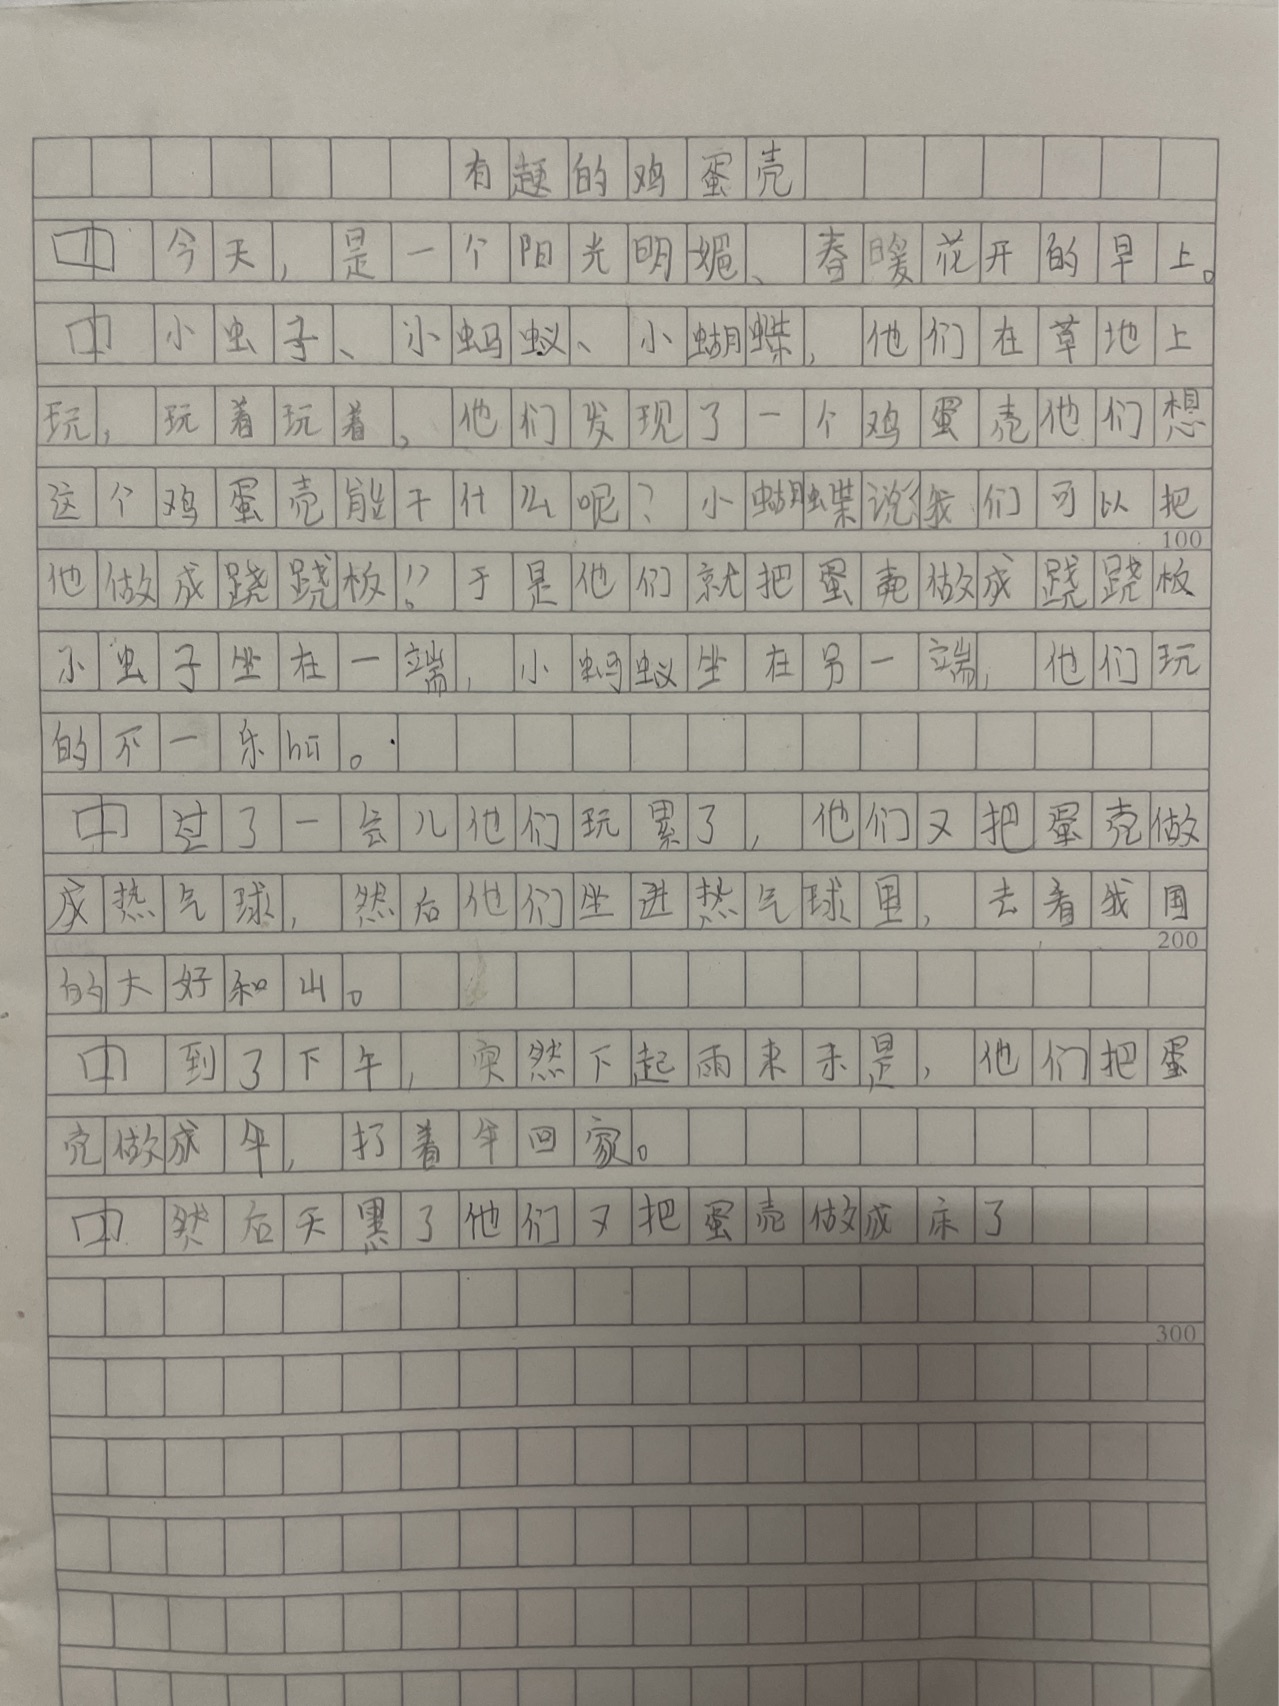 有趣的鸡蛋壳
今天，是一个阳光明媚、春暖花开的早上。
小虫子、小蚂蚁、小蝴蝶，他们在草地上
玩，玩着玩着，他们发现了一个鸡蛋壳他们想
这个鸡蛋壳能干什么呢？小蝴蝶说“我们可以把
100
他做成跷跷板！”于是他们就把蛋壳做成跷跷板
小虫子坐在一端，小蚂蚁坐在另一端，他们玩
的不一乐hū。
过了一会儿他们玩累了，他们又把蛋壳做
成热气球，然后他们坐进热气球里，去看我国
200
的大好和山。
到了下午，突然下起雨来于是，他们把蛋
壳做成伞，打着伞回家。
然后天黑了他们又把蛋壳做成床了
300